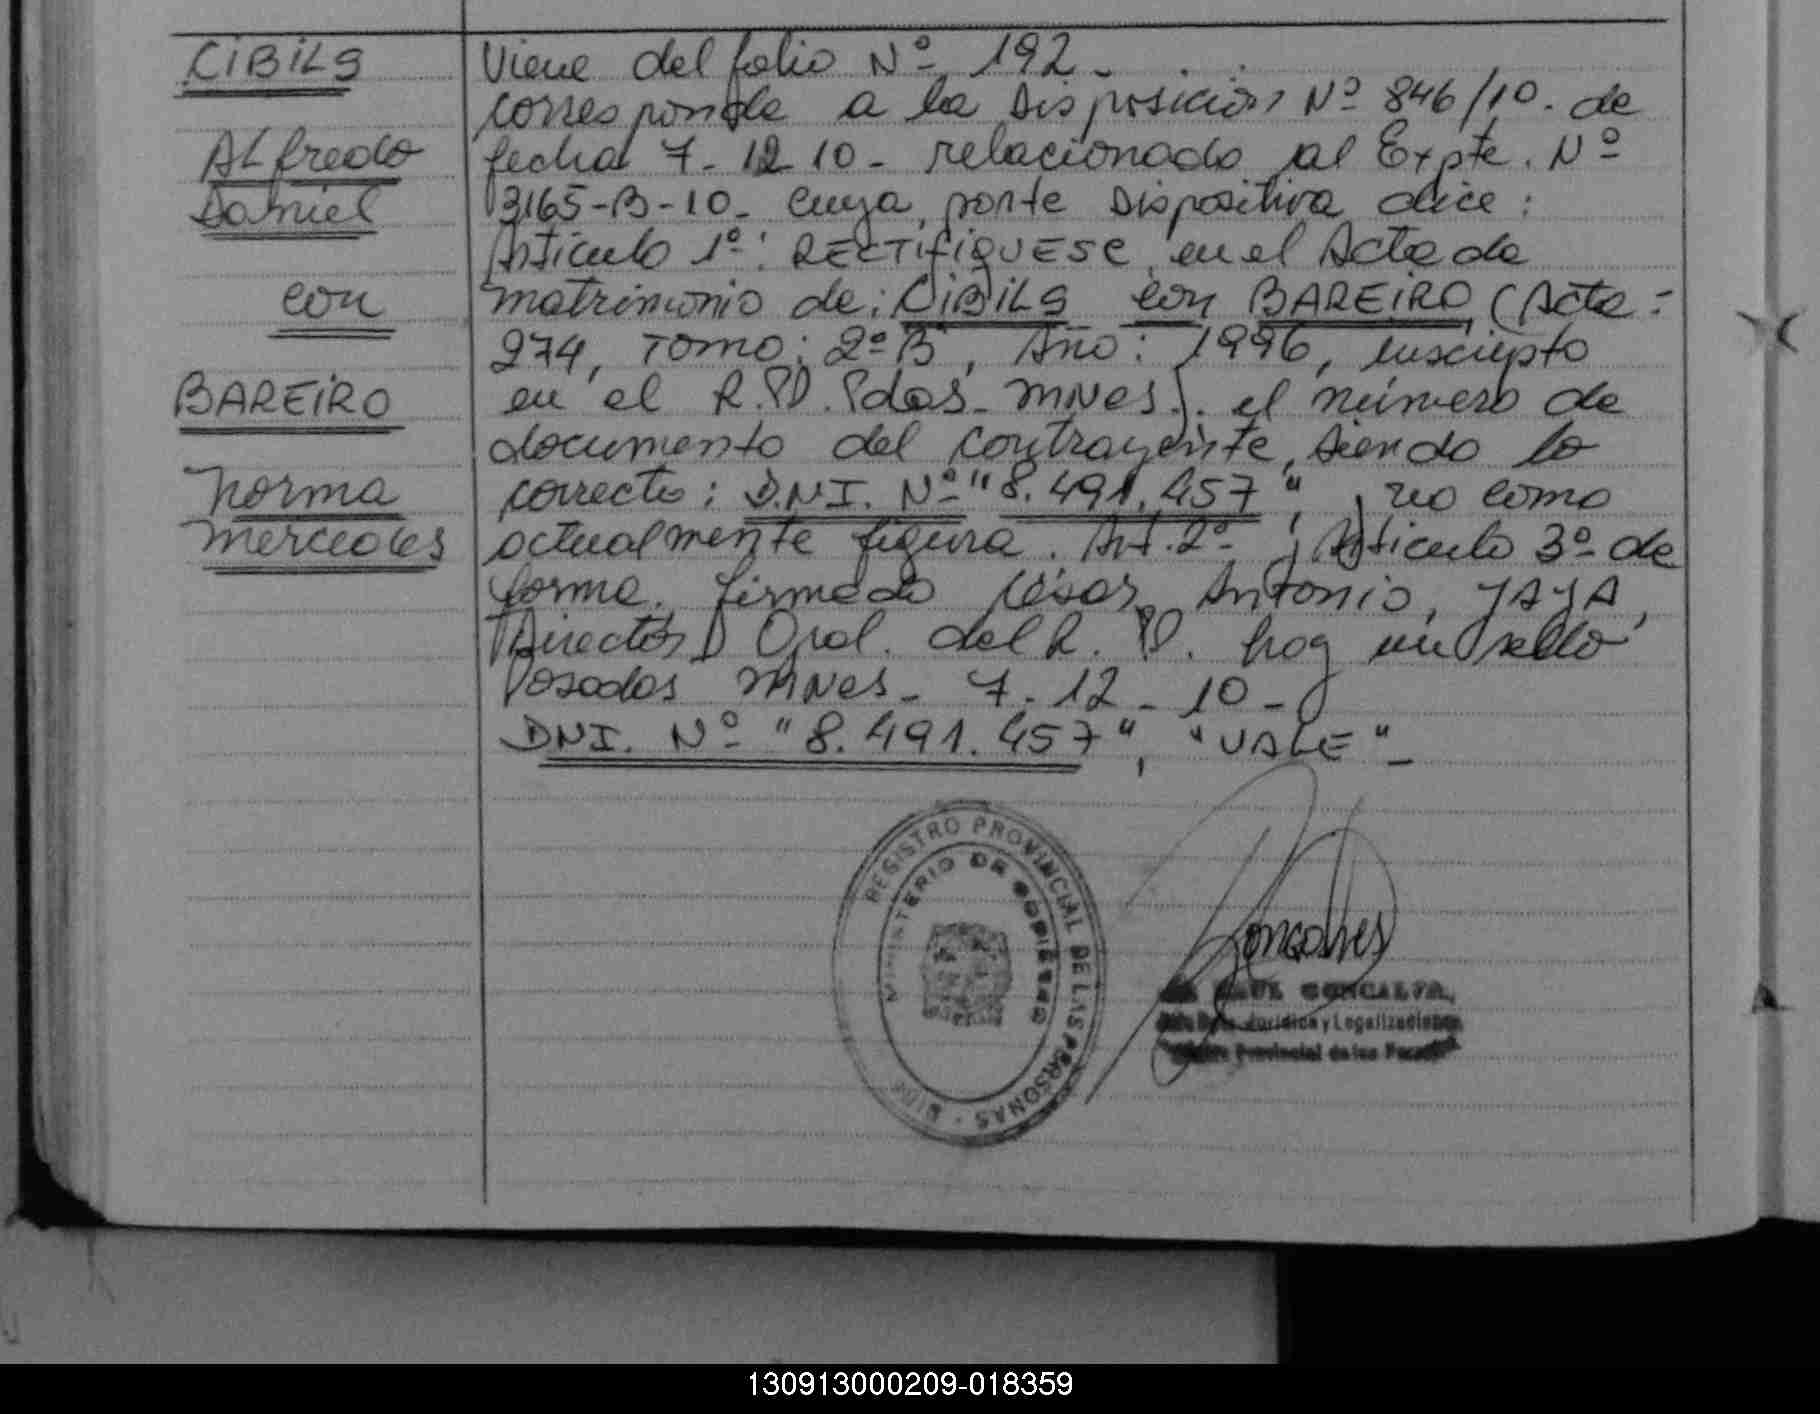 CIBILS
ALfredo
Daniel
con
BAREIRO
Norma
Mercedes
Viene del folio Nº 192-
corresponde a la Disposición Nº 846/10. de
fecha 7-12-10- relacionado al Expte. Nº
3165-B-10- cuya parte Dispositiva dice:
Artículo 1º: RECTIFIQUESE en el Acta de
matrimonio de: CIBILS con BAREIRO (Acta:
274, Tomo: 2º B, Año: 1996, inscripto
en el R.P. Pdas. Mnes). el número de
documento del contrayente, siendo lo
correcto: D.N.I. Nº "8.491.457", no como
actualmente figura. Art. 2º y Artículo 3º de
forma. firmado César Antonio, YAYA,
Director Gral. del R. P. hay un sello
Posadas Mnes- 7-12-10-
DNI. Nº "8.491.457", "VALE"-
REGISTRO PROVINCIAL DE LAS PERSONAS
MINISTERIO DE GOBIERNO
Goncalves
RAUL GONCALVES
Jurídica y Legalizaciones
Provincial de las Personas
130913000209-018359